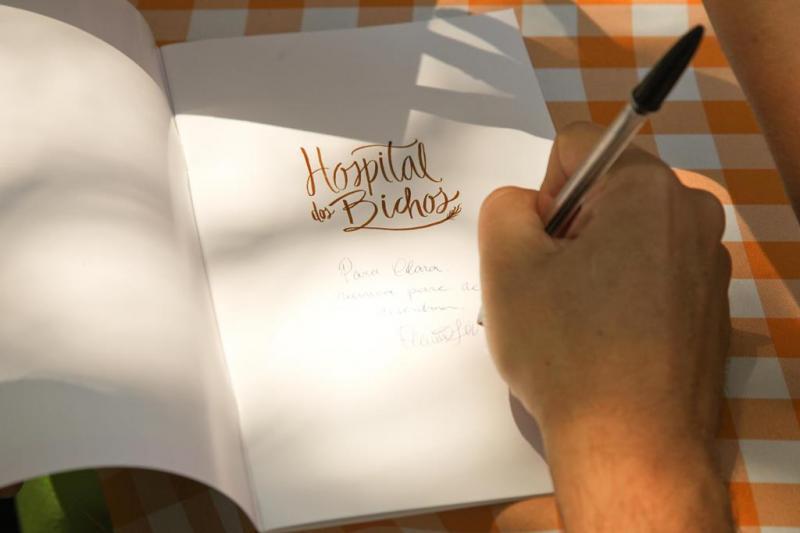 Hospital
dos Bichos
Para Clara.
nunca pare de